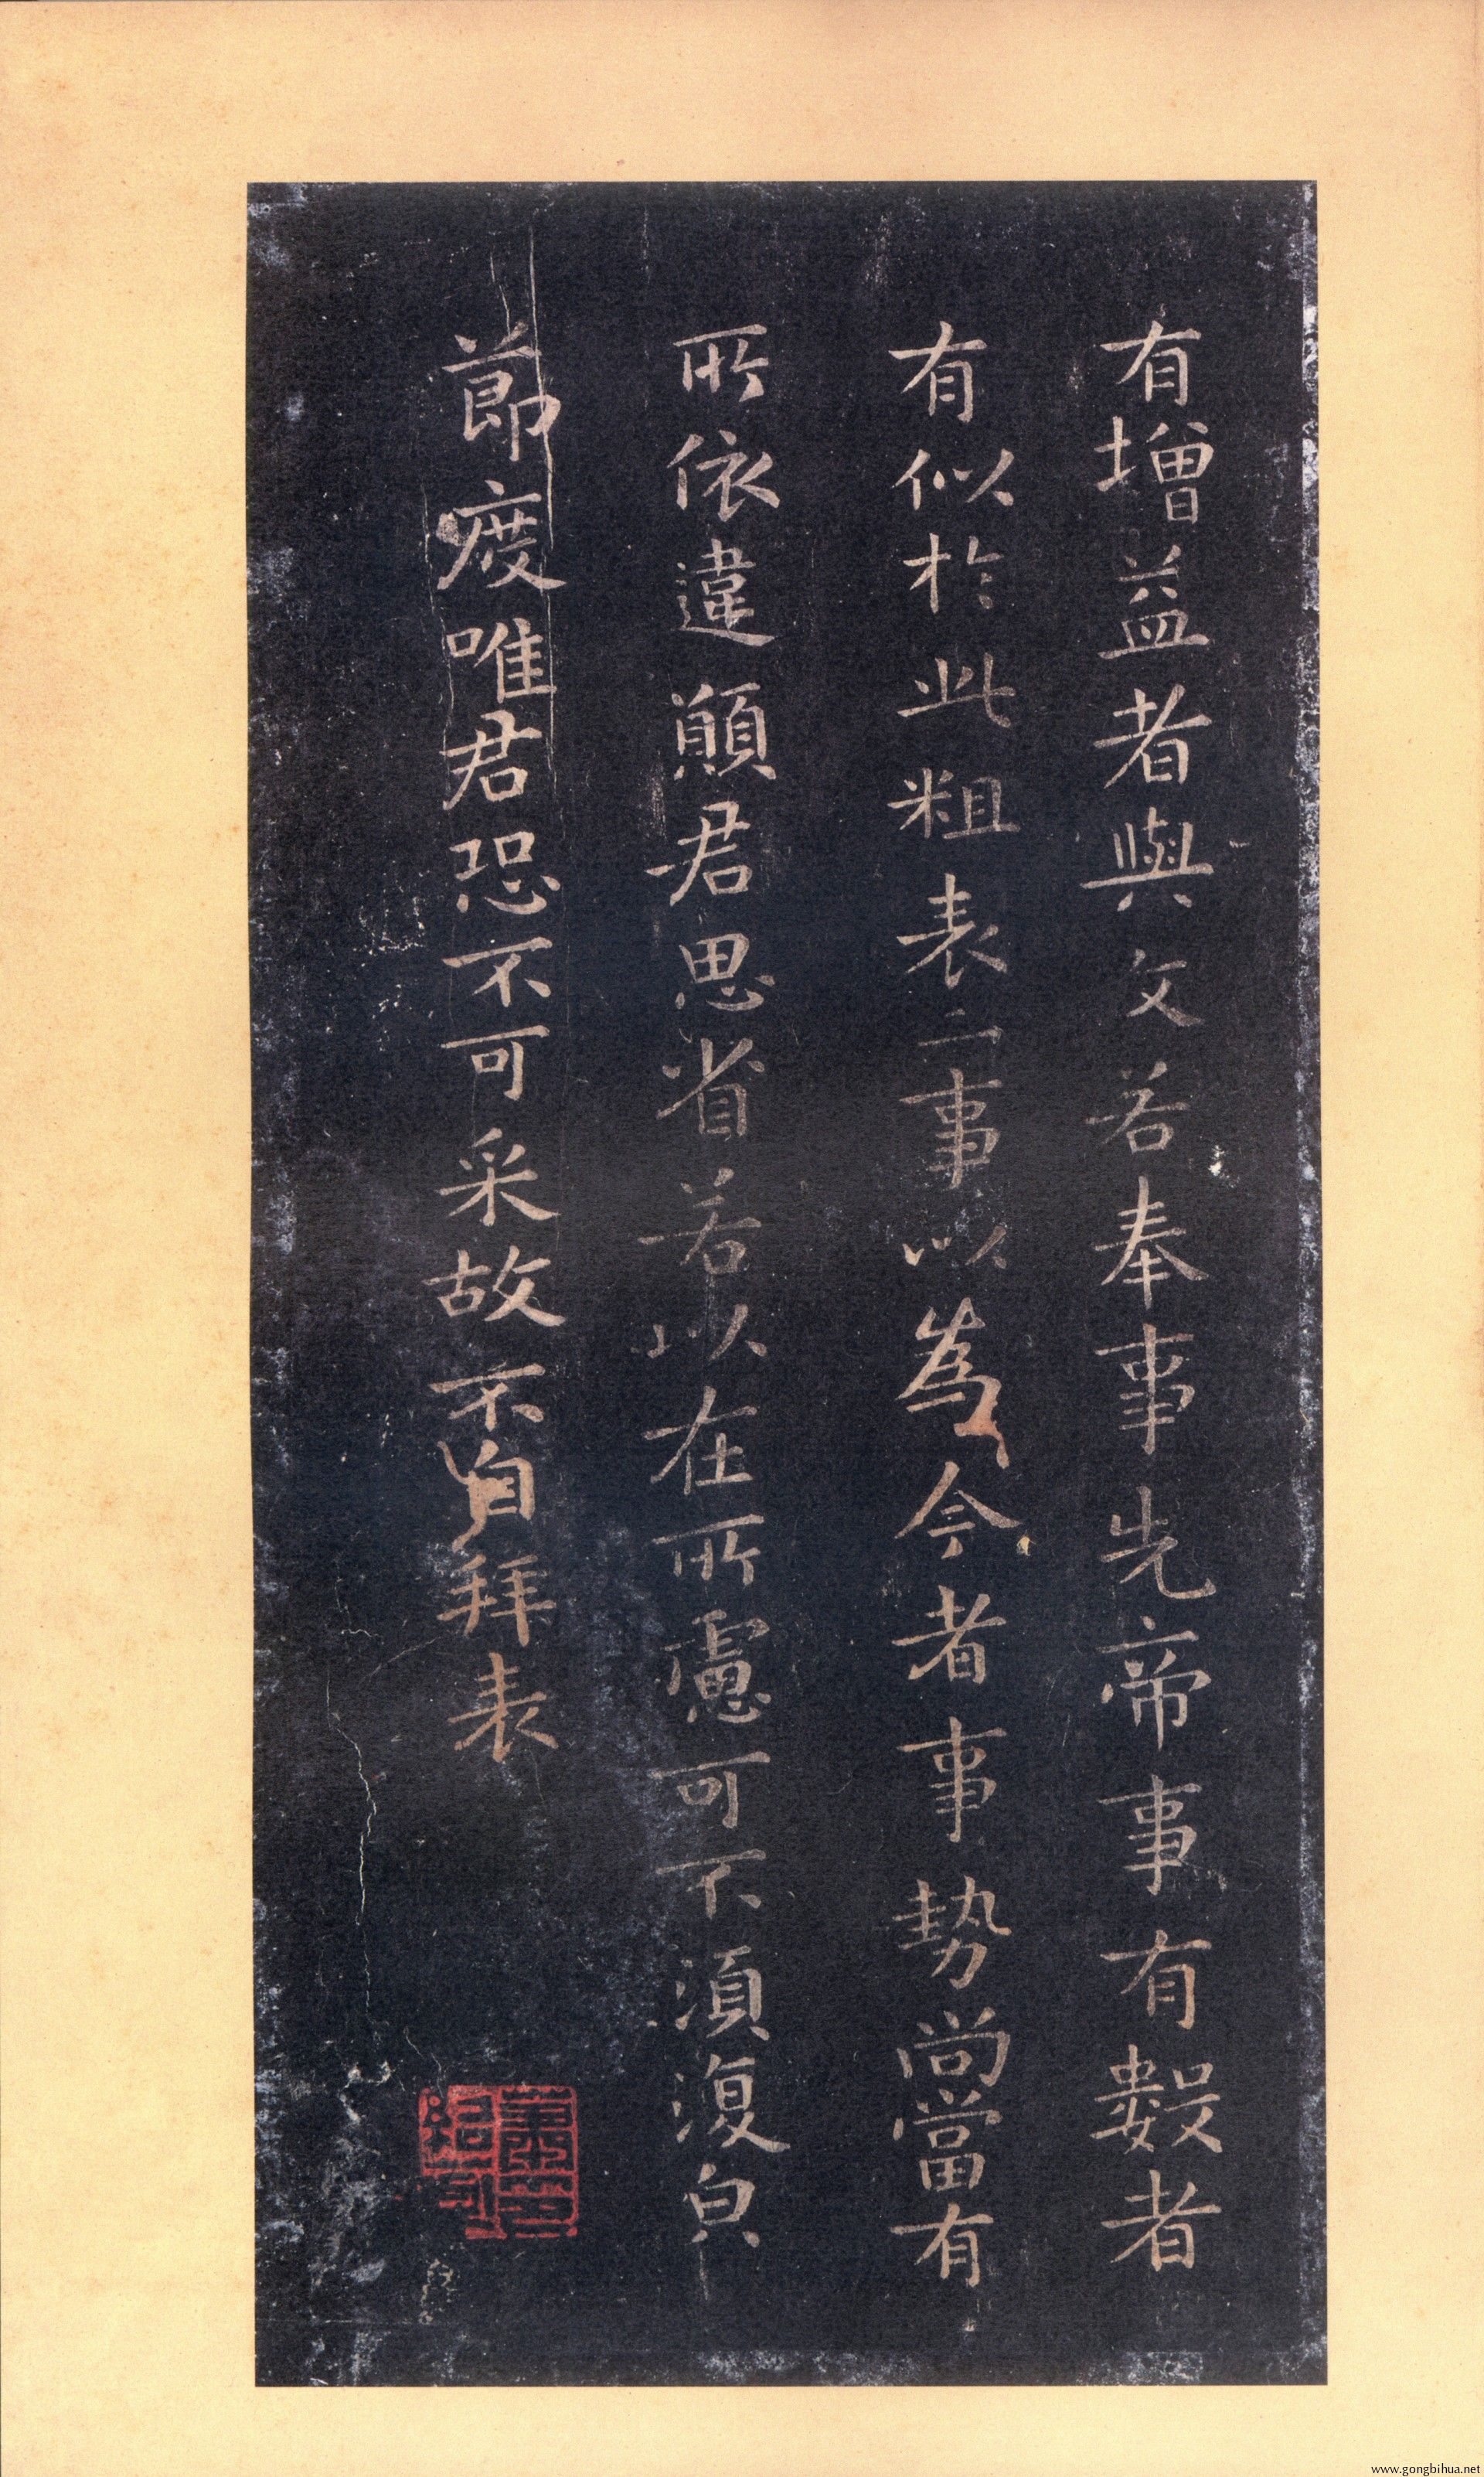 有增益者與文若奉事先帝事有數者
有似於此粗表二事以為今者事勢尚當有
所依違願君思省若以在所慮可不須復白
節度唯君恐不可采故不自拜表
www.gongbihua.net